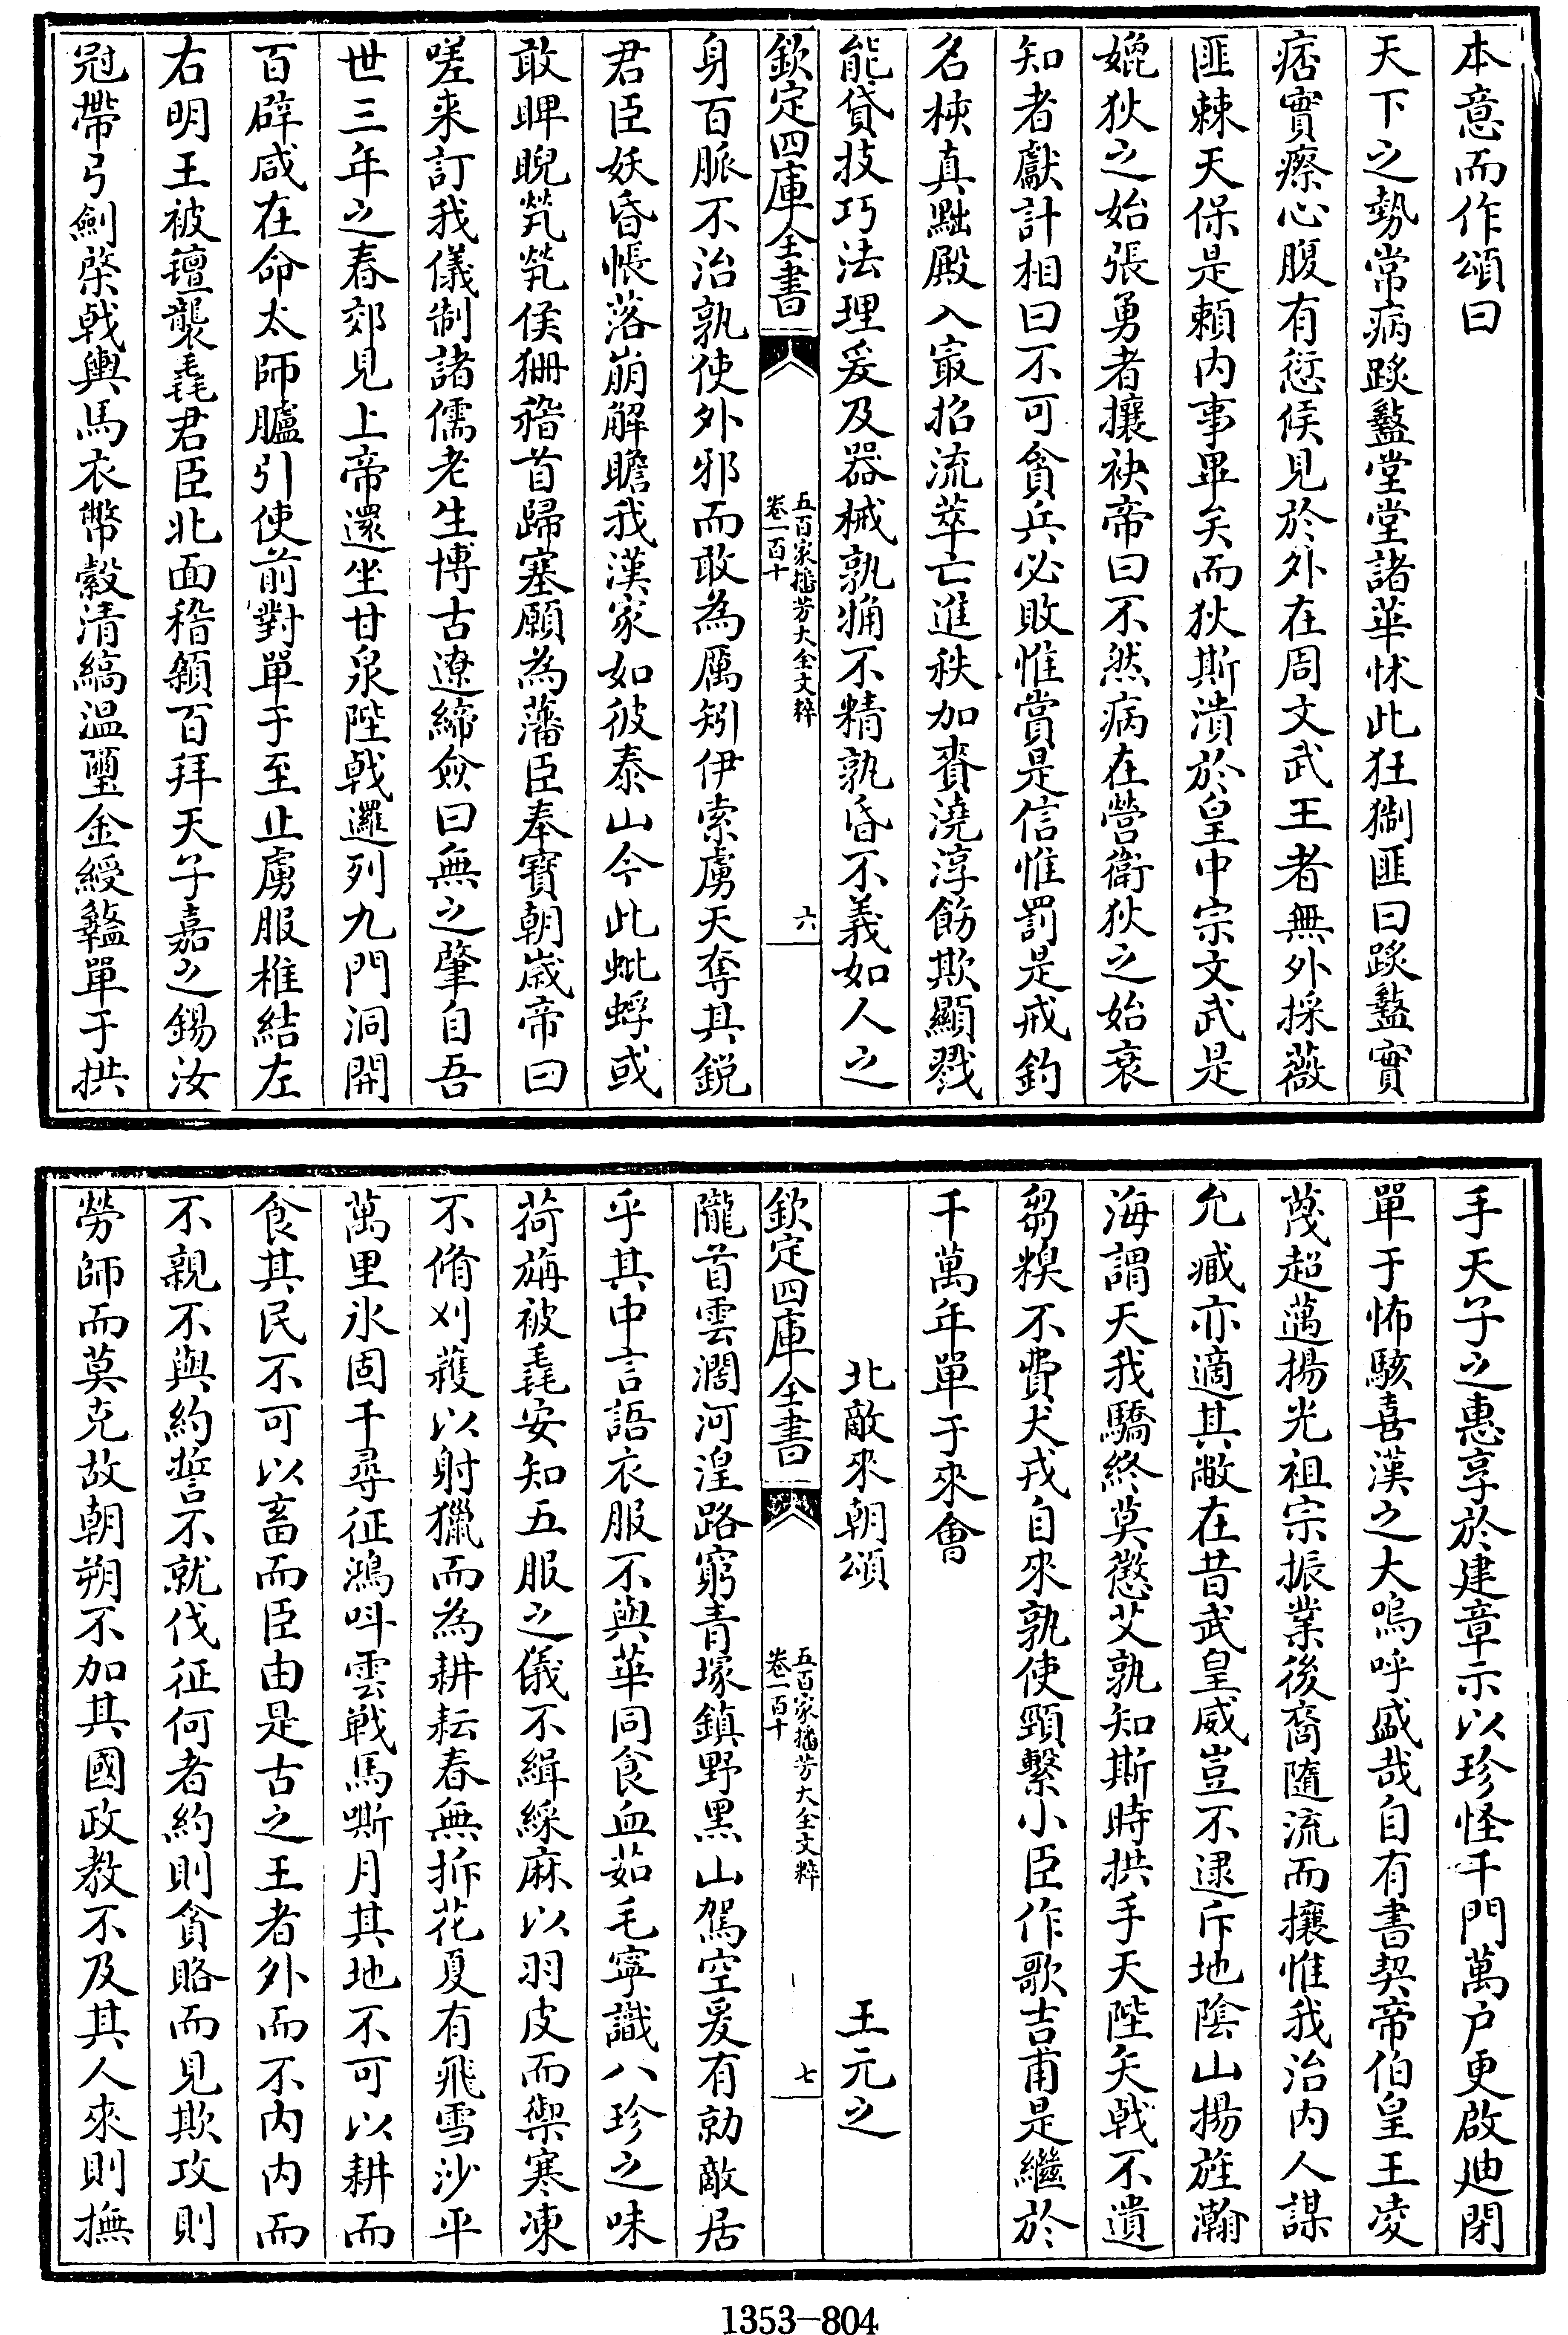 本意而作頌曰
天下之勢常病蹊盭堂堂諸華怵此狂猘匪曰蹊盭實
痞實瘵心腹有愆候見於外在周文武王者無外採薇
匪棘天保是賴内事畢矣而狄斯潰於皇中宗文武是
媲狄之始張勇者攘袂帝曰不然病在營衛狄之始衰
知者獻計相曰不可貪兵必敗惟賞是信惟罰是戒鈞
名校真黜殿入最招流萃亡進秩加賚澆淳飭欺顯戮
能貸技巧法理爰及器械孰痡不精孰昏不義如人之
欽定四庫全書
五百家播芳大全文粹
卷一百十
六
身百脈不治孰使外邪而敢為厲矧伊索虜天奪其鋭
君臣妖昏帳落崩解瞻我漢家如彼泰山今此蚍蜉或
敢睥睨煢煢侯狦稽首歸塞願為藩臣奉寶朝嵗帝曰
嗟来訂我儀制諸儒老生博古遼締僉曰無之肇自吾
世三年之春郊見上帝還坐甘泉陛戟邐列九門洞開
百辟咸在命太師臚引使前對單于至止虜服椎結左
右明王被氊襲毳君臣北面稽顙百拜天子嘉之錫汝
冠帶弓劒棨戟輿馬衣幣縠清縞温璽金綬盭單于拱
手天子之惠享於建章示以珍怪千門萬户更啟廸閉
單于怖駭喜漢之大嗚呼盛哉自有書契帝伯皇王凌
蔑超邁揚光祖宗振業後裔隨流而攘惟我治内人謀
允臧亦適其敝在昔武皇威豈不逮斥地陰山揚旌瀚
海謂天我驕終莫懲艾孰知斯時拱手天陛矢戟不遺
芻糗不費犬戎自來孰使頸繫小臣作歌吉甫是繼於
千萬年單于來會
北敵來朝頌
王元之
欽定四庫全書
五百家播芳大全文粹
卷一百十
七
隴首雲濶河湟路窮青塚鎮野黑山駕空爰有勍敵居
乎其中言語衣服不與華同食血茹毛寧識八珍之味
荷旃被毳安知五服之儀不緝綵麻以羽皮而禦寒凍
不脩刈穫以射獵而為耕耘春無拆花夏有飛雪沙平
萬里氷固千尋征鴻呌雲戰馬嘶月其地不可以耕而
食其民不可以畜而臣由是古之王者外而不内内而
不親不與約誓不就伐征何者約則貪賂而見欺攻則
勞師而莫克故朝朔不加其國政教不及其人來則撫
1353-804